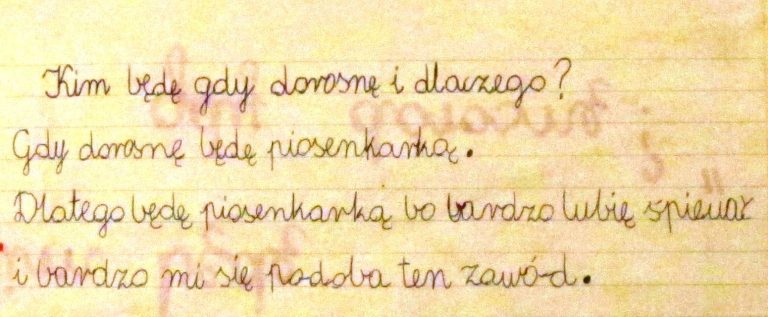 Kim będę gdy dorosnę i dlaczego?
Gdy dorosnę będę piosenkarką.
Dlatego będę piosenkarką bo bardzo lubię śpiewać
i bardzo mi się podoba ten zawód.